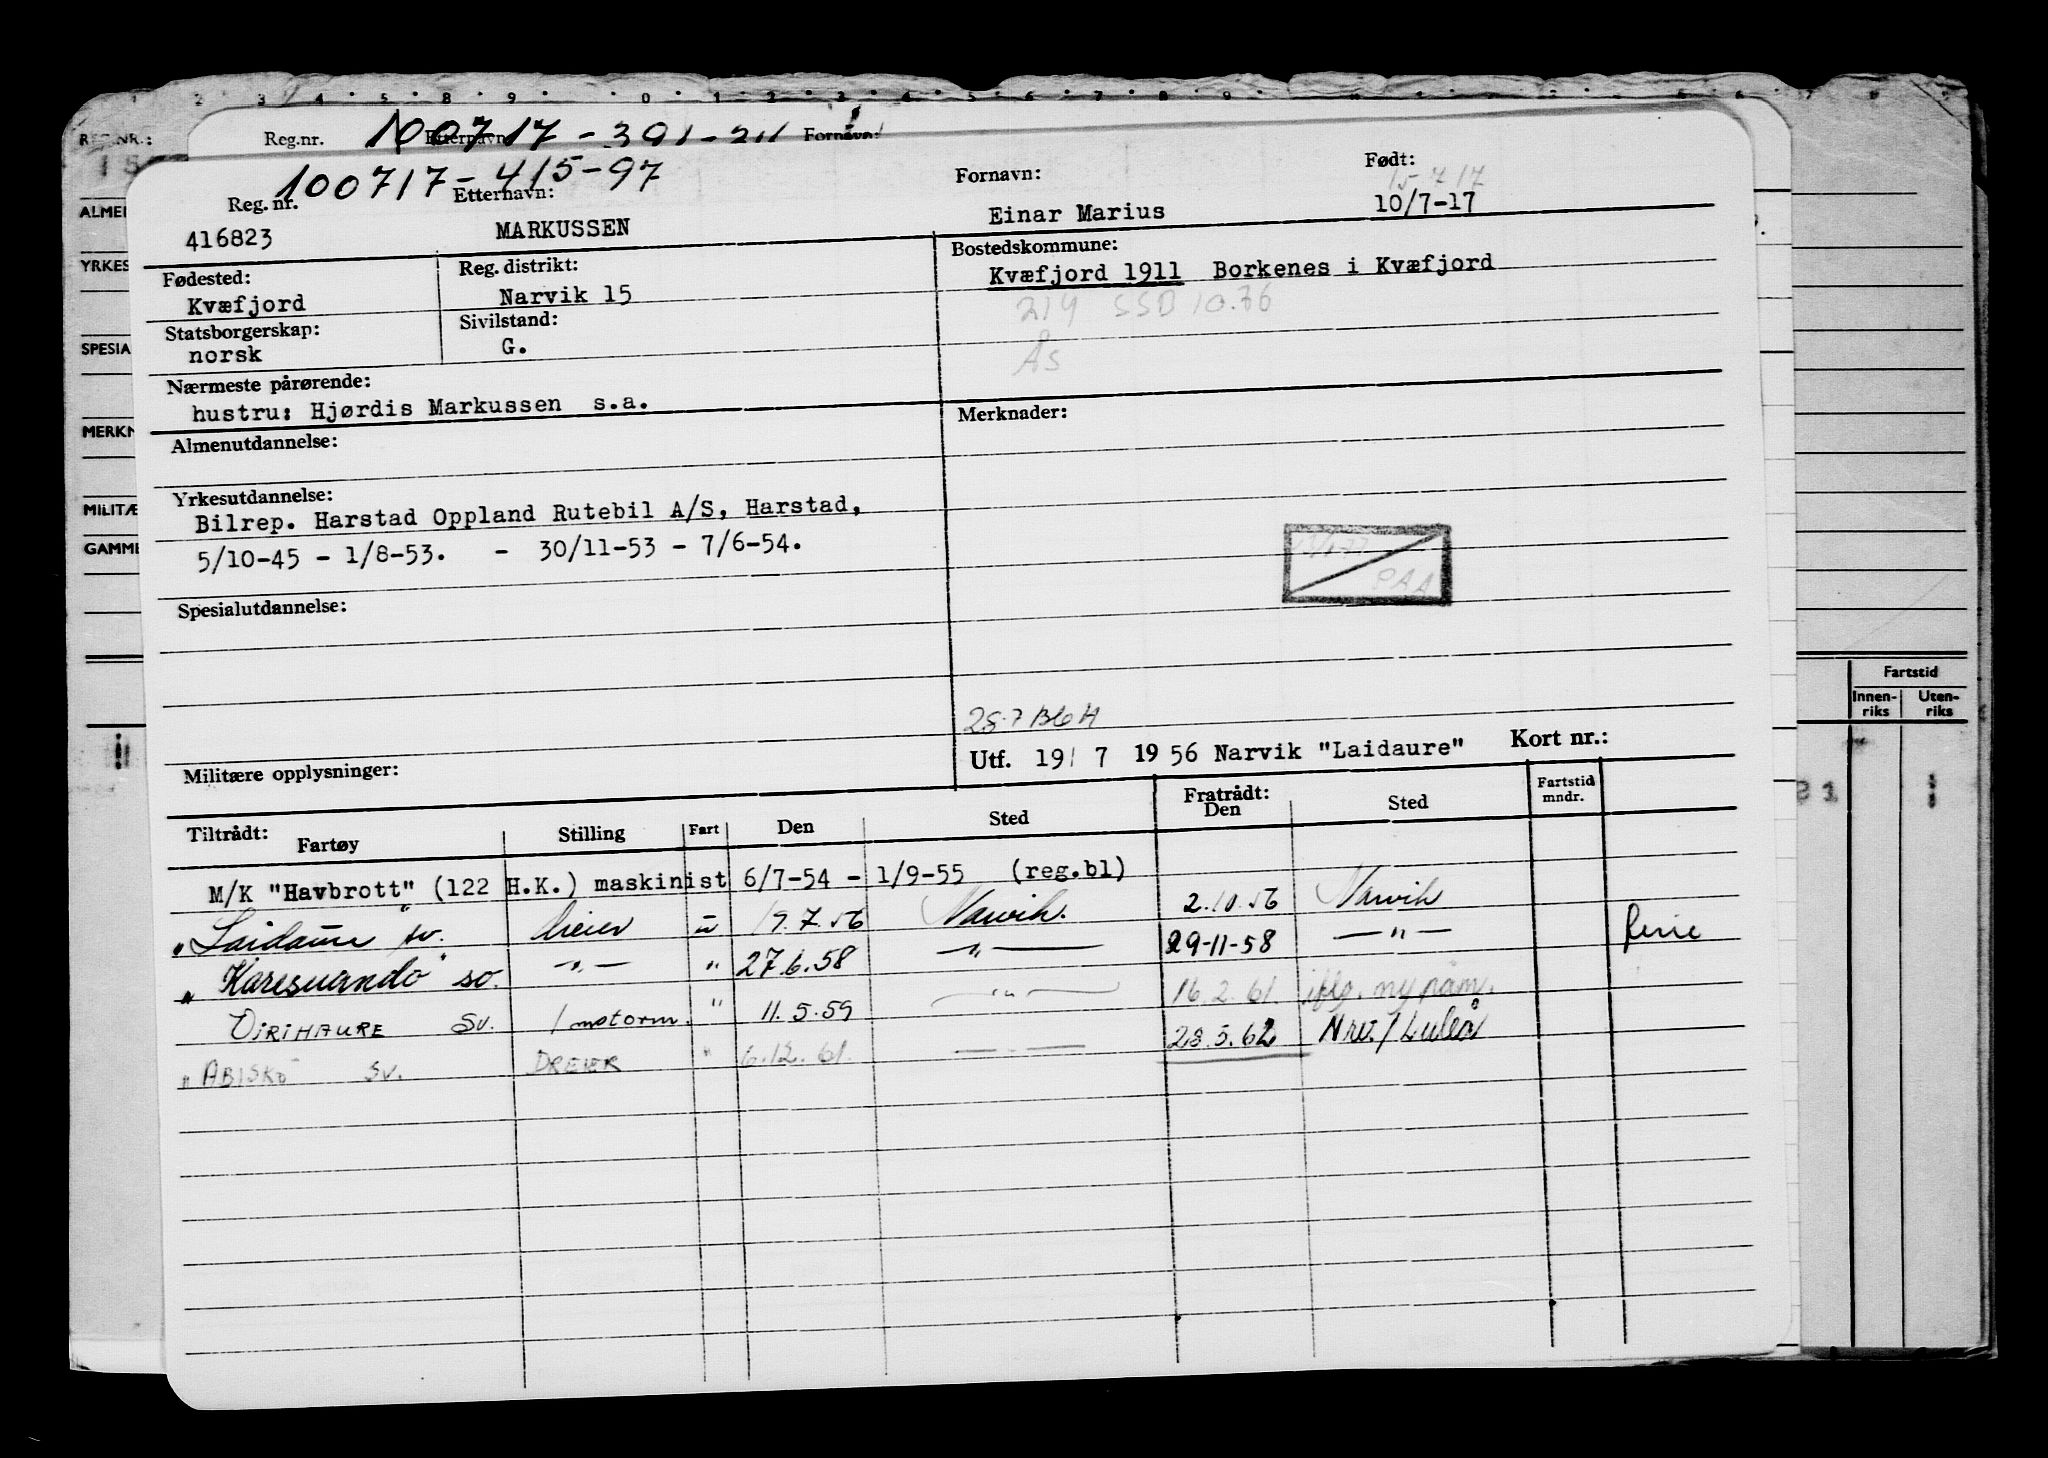 REG.NR.:
Reg.nr. 100717 - 391 - Etternavn: Fornavn:
15
100717 - 415-97
Reg. nr. Etternavn: Fornavn: Født:
15-7 17
416823 MARKUSSEN Einar Marius 10/7-17
ALMEN
YRKES
SPESIA
MERKN
MILITÆ
GAMME
Fødested: Reg. distrikt: Bostedskommune:
Kvæfjord Narvik 15 Kvæfjord 1911 Borkenes i Kvæfjord
219 SSB 10.76
Statsborgerskap: Sivilstand:
norsk G. Ås
Nærmeste pårørende:
hustru: Hjørdis Markussen s.a.
Almenutdannelse: Merknader:
Yrkesutdannelse:
Bilrep. Harstad Oppland Rutebil A/S, Harstad,
5/10-45 - 1/8-53. - 30/11-53 - 7/6-54.
PAA
Spesialutdannelse:
Militære opplysninger:
Utf. 19/ 7 1956 Narvik "Laidaure" Kort nr.:
Fartstid
Innen-riks Uten-riks
Tiltrådt: Fartøy Stilling Fart Den Sted Fratrådt: Den Sted Fartstid mndr.
M/K "Havbrott" (122 H.K.) maskinist 6/7-54 - 1/9-55 (reg.bl)
"Laidaure" sv. dreier u 19.7.56 Narvik. 2.10.56 Narvik
"Karesuando" sv. - " - " 27.6.58 - " - 29-11-58 - " - ferie
VIRIHAURE sv. 1 motorm. " 11.5.59 - " - 16.2.61 iflg. ny påm.
"ABISKO sv. DREIER " 6.12.61. 28.5.62 Nrv./Luleå